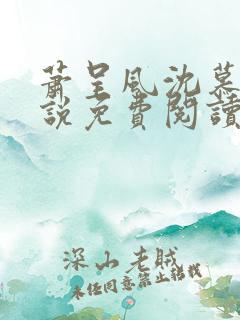 萧呈风沈慕
說免費閱讀
深山老賊
未经同意禁止转载